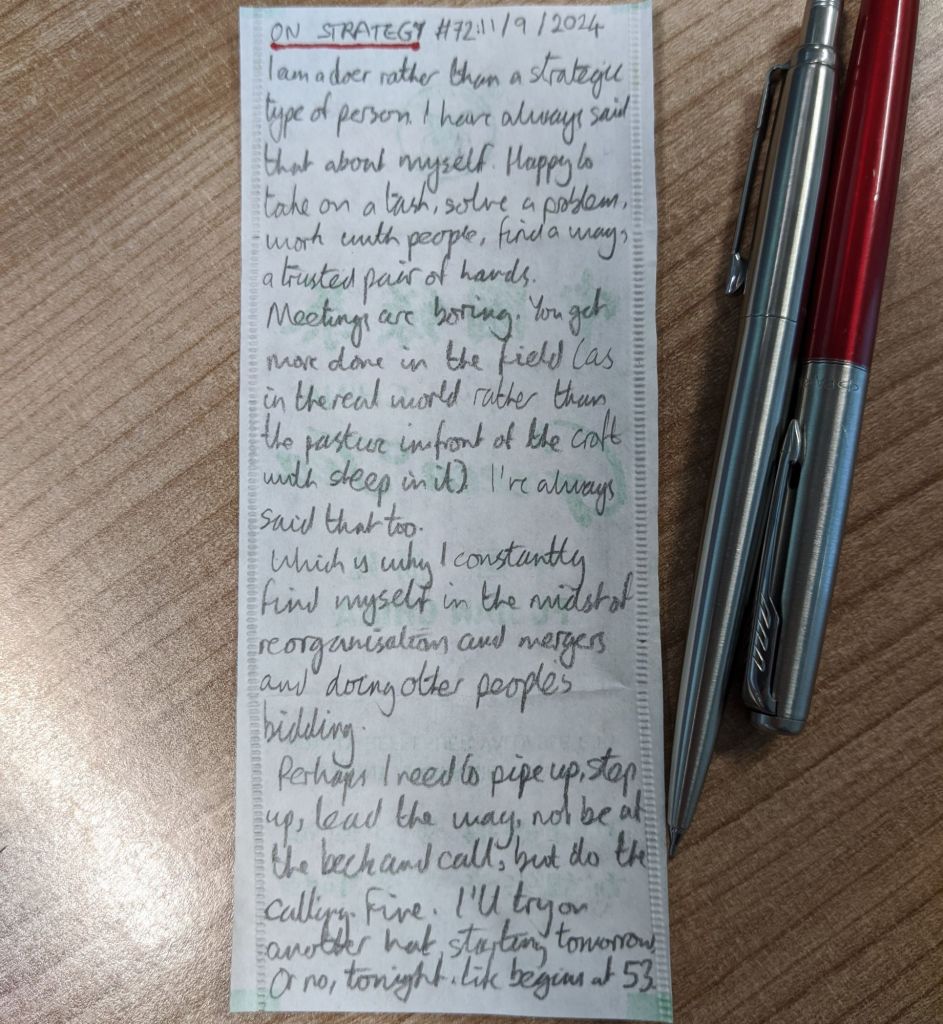 ON STRATEGY #72:11/9/2024
I am a doer rather than a strategic
type of person. I have always said
that about myself. Happy to
take on a task, solve a problem,
work with people, find a way,
a trusted pair of hands.
Meetings are boring. You get
more done in the field (as
in the real world rather than
the pasture infront of the croft
with sleep in it). I've always
said that too.
Which is why I constantly
find myself in the midst of
reorganisations and mergers
and doing other people's
bidding.
Perhaps I need to pipe up, step
up, lead the way, not be at
the beck and call, but do the
calling. Fine. I'll try on
another hat, starting tomorrow
Or no, tonight. Life begins at 53.
PARKER